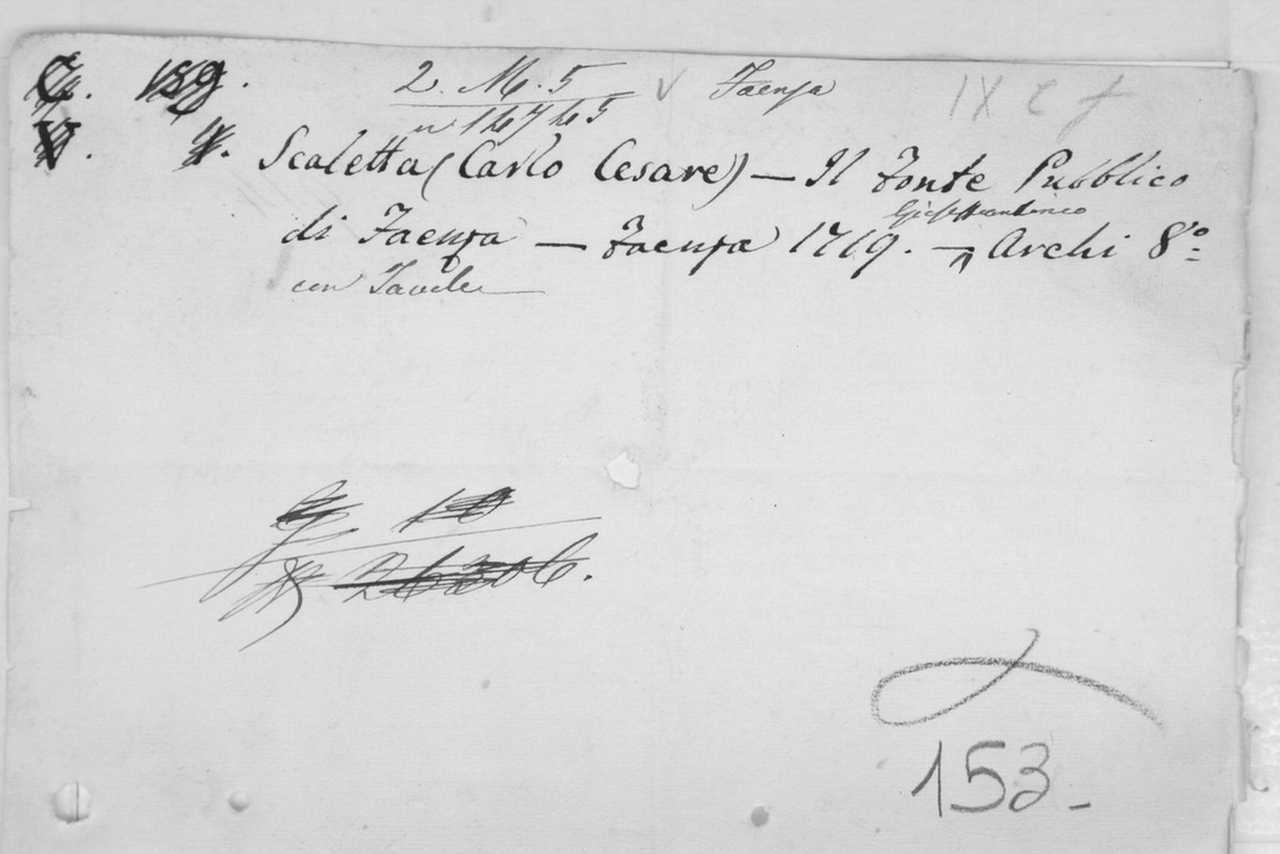 C. 159. 2. M. 5 v Faenza IX C f
n 14745
V. 4. Scaletta (Carlo Cesare) — Il Fonte Pubblico
di Faenza — Faenza 1719. — Gioseffantonio Archi 8°
con Tavole
G 10
26306.
153 -